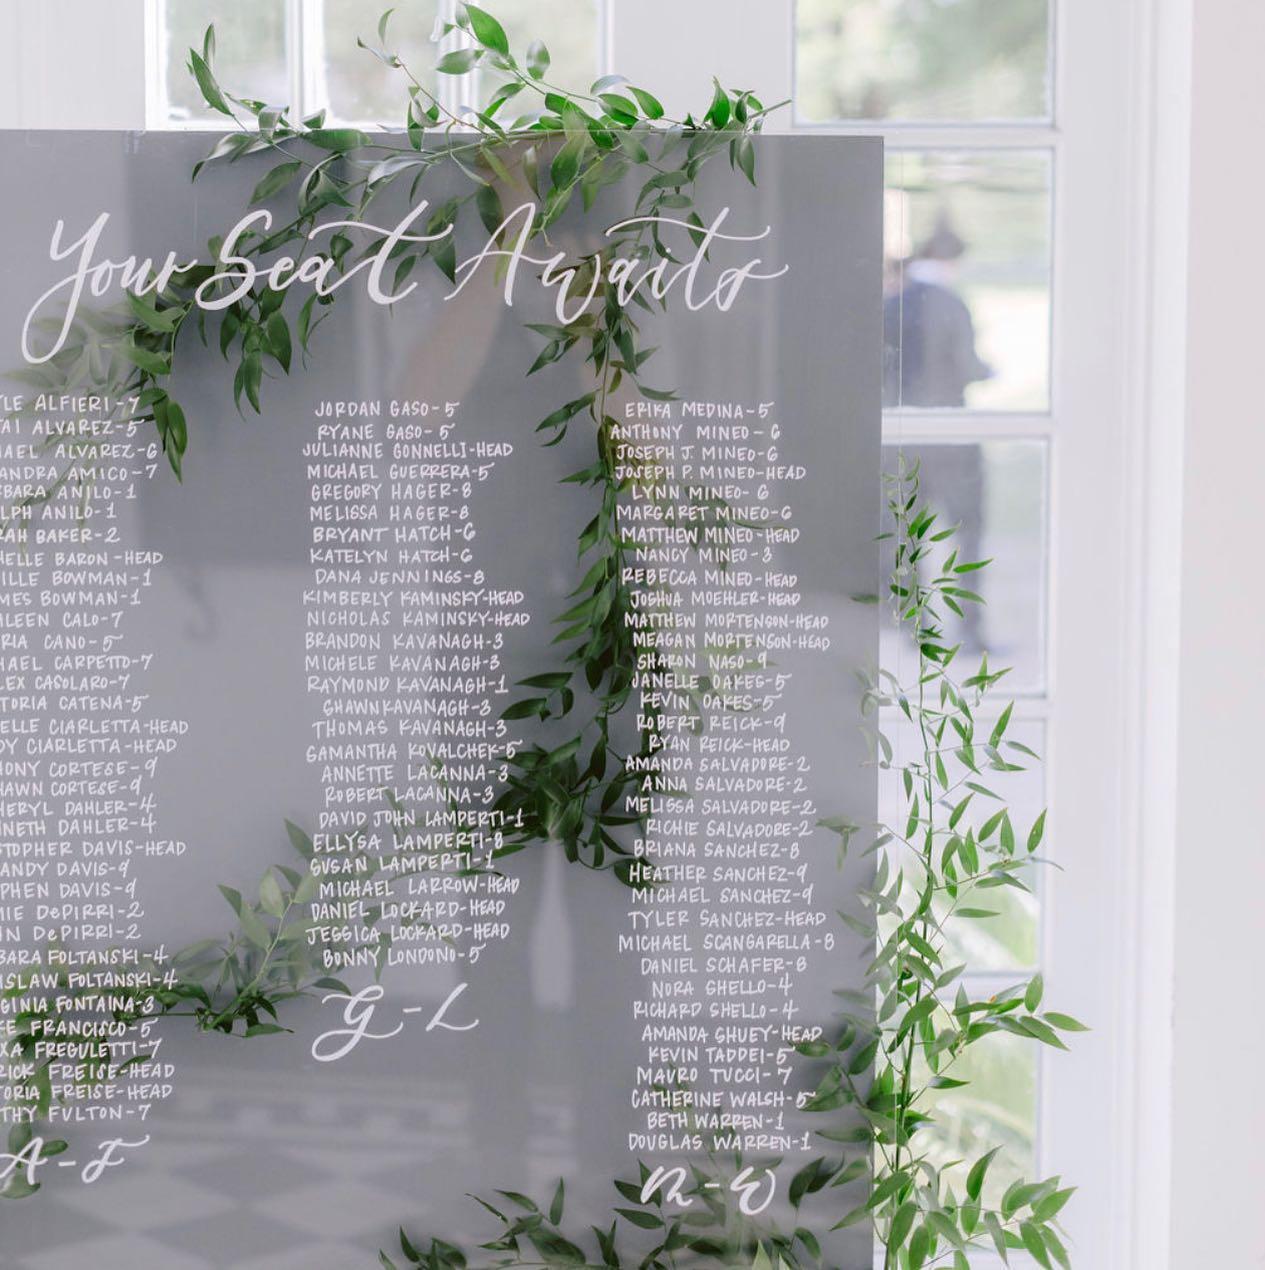 Your Seat Awaits
ALFIERI-7
ALVAREZ-5
ALVAREZ-6
AMICO-7
ANILO-1
ANILO-1
BAKER-2
BARON-HEAD
BOWMAN-1
BOWMAN-1
CALO-7
CANO-5
CARPETTO-7
CASOLARO-7
CATENA-5
CIARLETTA-HEAD
CIARLETTA-HEAD
CORTESE-9
CORTESE-9
DAHLER-4
DAHLER-4
DAVIS-HEAD
DAVIS-9
DAVIS-9
DePIRRI-2
DePIRRI-2
FOLTANSKI-4
FOLTANSKI-4
FONTAINA-3
FRANCISCO-5
FREGULETTI-7
FREISE-HEAD
FREISE-HEAD
FULTON-7
A-F
JORDAN GASO-5
RYANE GASO-5
JULIANNE GONNELLI-HEAD
MICHAEL GUERRERA-5
GREGORY HAGER-8
MELISSA HAGER-8
BRYANT HATCH-6
KATELYN HATCH-6
DANA JENNINGS-8
KIMBERLY KAMINSKY-HEAD
NICHOLAS KAMINSKY-HEAD
BRANDON KAVANAGH-3
MICHELE KAVANAGH-3
RAYMOND KAVANAGH-1
SHAWN KAVANAGH-3
THOMAS KAVANAGH-3
SAMANTHA KOVALCHEK-5
ANNETTE LACANNA-3
ROBERT LACANNA-3
DAVID JOHN LAMPERTI-1
ELLYSA LAMPERTI-8
SUSAN LAMPERTI-1
MICHAEL LARROW-HEAD
DANIEL LOCKARD-HEAD
JESSICA LOCKARD-HEAD
BONNY LONDONO-5
G-L
ERIKA MEDINA-5
ANTHONY MINEO-6
JOSEPH J. MINEO-6
JOSEPH P. MINEO-HEAD
LYNN MINEO-6
MARGARET MINEO-6
MATTHEW MINEO-HEAD
NANCY MINEO-3
REBECCA MINEO-HEAD
JOSHUA MOEHLER-HEAD
MATTHEW MORTENSON-HEAD
MEAGAN MORTENSON-HEAD
SHARON NASO-9
JANELLE OAKES-5
KEVIN OAKES-5
ROBERT REICK-9
RYAN REICK-HEAD
AMANDA SALVADORE-2
ANNA SALVADORE-2
MELISSA SALVADORE-2
RICHIE SALVADORE-2
BRIANA SANCHEZ-8
HEATHER SANCHEZ-9
MICHAEL SANCHEZ-9
TYLER SANCHEZ-HEAD
MICHAEL SCANGARELLA-8
DANIEL SCHAFER-8
NORA SHELLO-4
RICHARD SHELLO-4
AMANDA SHUEY-HEAD
KEVIN TADDEI-5
MAURO TUCCI-7
CATHERINE WALSH-5
BETH WARREN-1
DOUGLAS WARREN-1
M-W